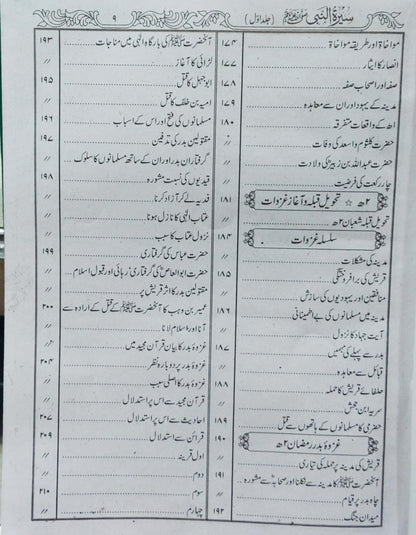 سیرۃ النبی ﷺ (جلد اول) ۹
مواخاۃ اور طریقہ مواخاۃ ۱۷۴
انصار کا ایثار ۱۷۷
صفہ اور اصحاب صفہ ۱۷۸
مدینہ کے یہود اور ان سے معاہدہ ۱۷۹
۱ھ کے واقعات متفرقہ ۱۸۰
حضرت کلثوم و اسعد کی وفات //
حضرت عبداللہ بن زبیر کی ولادت //
چار رکعت کی فرضیت //
۲ھ تحویل قبلہ و آغاز غزوات ۱۸۱
تحویل قبلہ شعبان ۲ھ //
سلسلہ غزوات ۱۸۴
مدینہ کی مشکلات //
قریش کی برافروختگی ۱۸۵
منافقین اور یہودیوں کی سازش //
مدینہ میں مسلمانوں کی بے اطمینانی ۱۸۶
آیت جہاد کا نزول //
بدر سے پہلے کی مہمیں ۱۸۷
قبائل سے معاہدہ //
حلفائے قریش کا حملہ ۱۸۸
سریہ ابن جحش //
حضرمی کا مسلمانوں کے ہاتھوں سے قتل ۱۸۹
غزوہ بدر رمضان ۲ھ ۱۹۰
قریش کی مدینہ پر حملہ کی تیاری //
آنحضرت ﷺ کا مدینہ سے نکلنا اور صحابہ سے مشورہ ۱۹۱
چاہ بدر پر قیام //
میدان جنگ ۱۹۲
آنحضرت ﷺ کی بارگاہ الٰہی میں مناجات ۱۹۳
لڑائی کا آغاز //
ابوجہل کا قتل ۱۹۵
امیہ بن خلف کا قتل //
مسلمانوں کی فتح اور اس کے اسباب ۱۹۶
مقتولین بدر کی تدفین ۱۹۷
گرفتاران بدر اور ان کے ساتھ مسلمانوں کا سلوک //
قیدیوں کی نسبت مشورہ ۱۹۸
فدیہ لے کر آزاد کرنا //
عتاب الٰہی کا نازل ہونا //
نزول عتاب کا سبب //
حضرت عباس کی گرفتاری ۱۹۹
حضرت ابوالعاص کی گرفتاری رہائی اور قبول اسلام //
مقتولین بدر کا اثر قریش پر //
عمیر بن وہب کا آنحضرت ﷺ کے قتل کے ارادہ سے ۲۰۰
آنا اور اسلام لانا //
غزوۂ بدر کا بیان قرآن مجید میں //
غزوۂ بدر پر دوبارہ نظر ۲۰۴
غزوۂ بدر کا اصلی سبب //
قرآن مجید سے اس پر استدلال //
احادیث سے اس پر استدلال ۲۰۷
قرائن سے استدلال ۲۰۹
اول قرینہ //
دوم //
سوم ۲۱۰
چہارم //